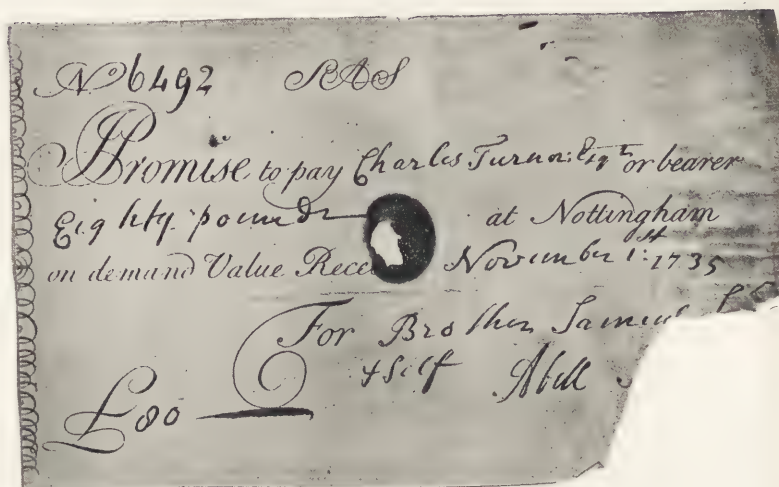 No 6492 SAS
Promise to pay Charles Turner Esqr or bearer
Eighty pounds at Nottingham
on demand Value Rece November 1st 1735
For Brother Samuel
& Self Abell
£80